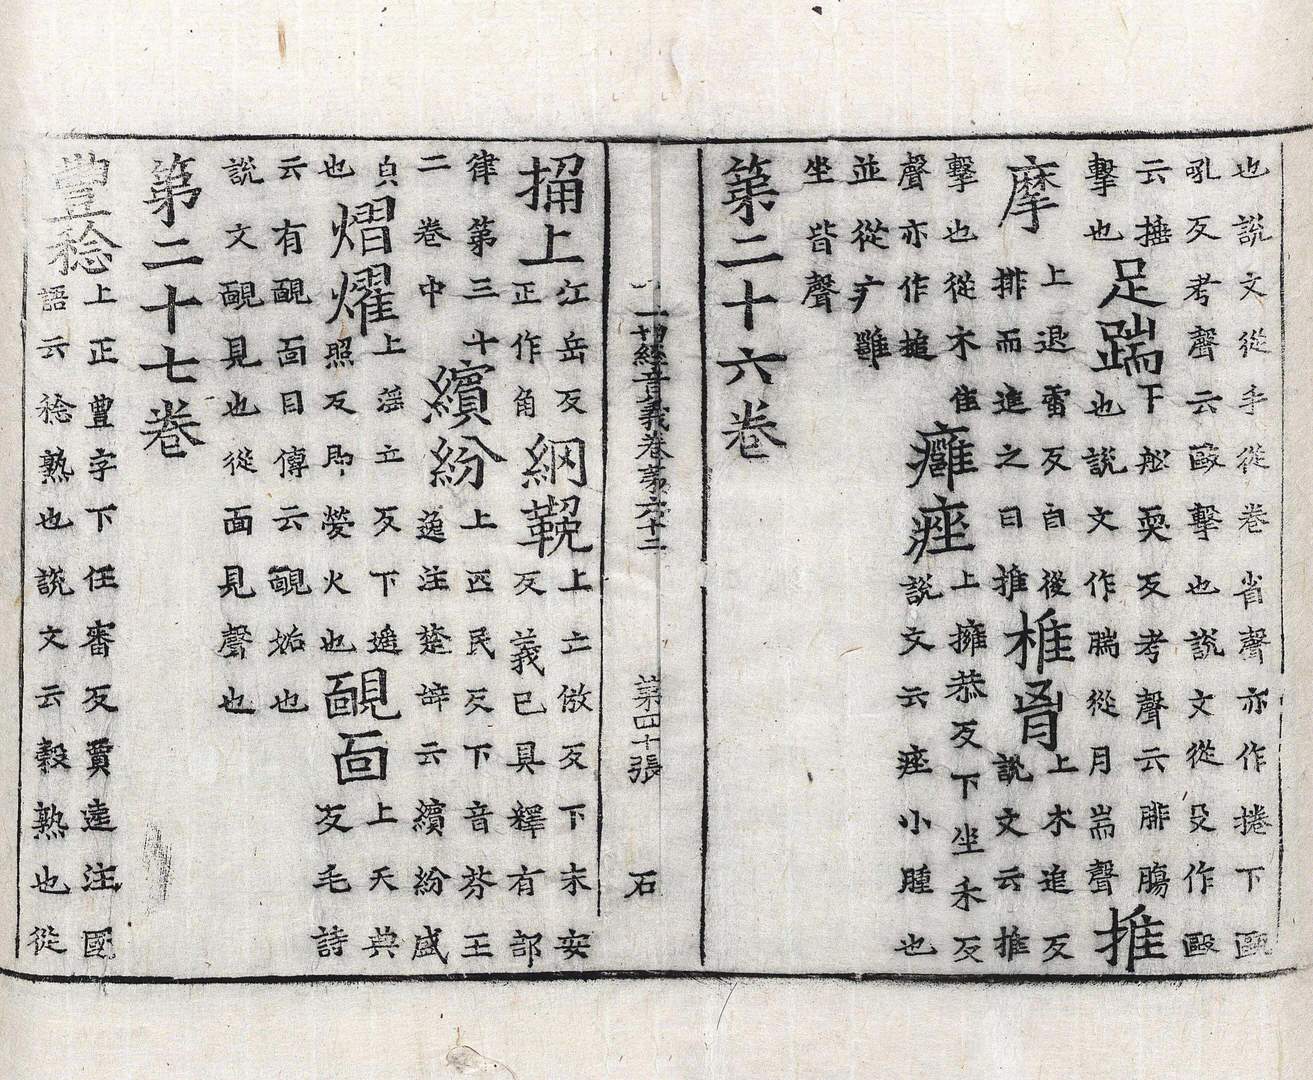 也說文從手從卷省聲亦作捲下毆
吼反考聲云毆擊也說文從殳作毆
云捶擊也足踹下船耎反考聲云腓膓也說文作腨從月耑聲推
摩上退雷反自後排而進之曰推椎𦙶上木追反說文云推擊也從木隹聲亦作槌
癰痤上擁恭反下坐禾反說文云痤小腫也並從疒雝坐皆聲
第二十六卷
一切經音義卷第六十二 第四十張 石
捔上江岳反正作角網鞔上亡倣反下末安反義已具釋有部
律第三十二卷中繽紛上匹民反下音芬王逸注楚辝云繽紛盛
皃也熠燿上淫立反下遙照反即熒火也靦面上天典反毛詩
云有靦面目傳云靦姡也說文靦見也從面見聲也
第二十七卷
豐稔上正豐字下任審反賈逵注國語云稔熟也說文云穀熟也從